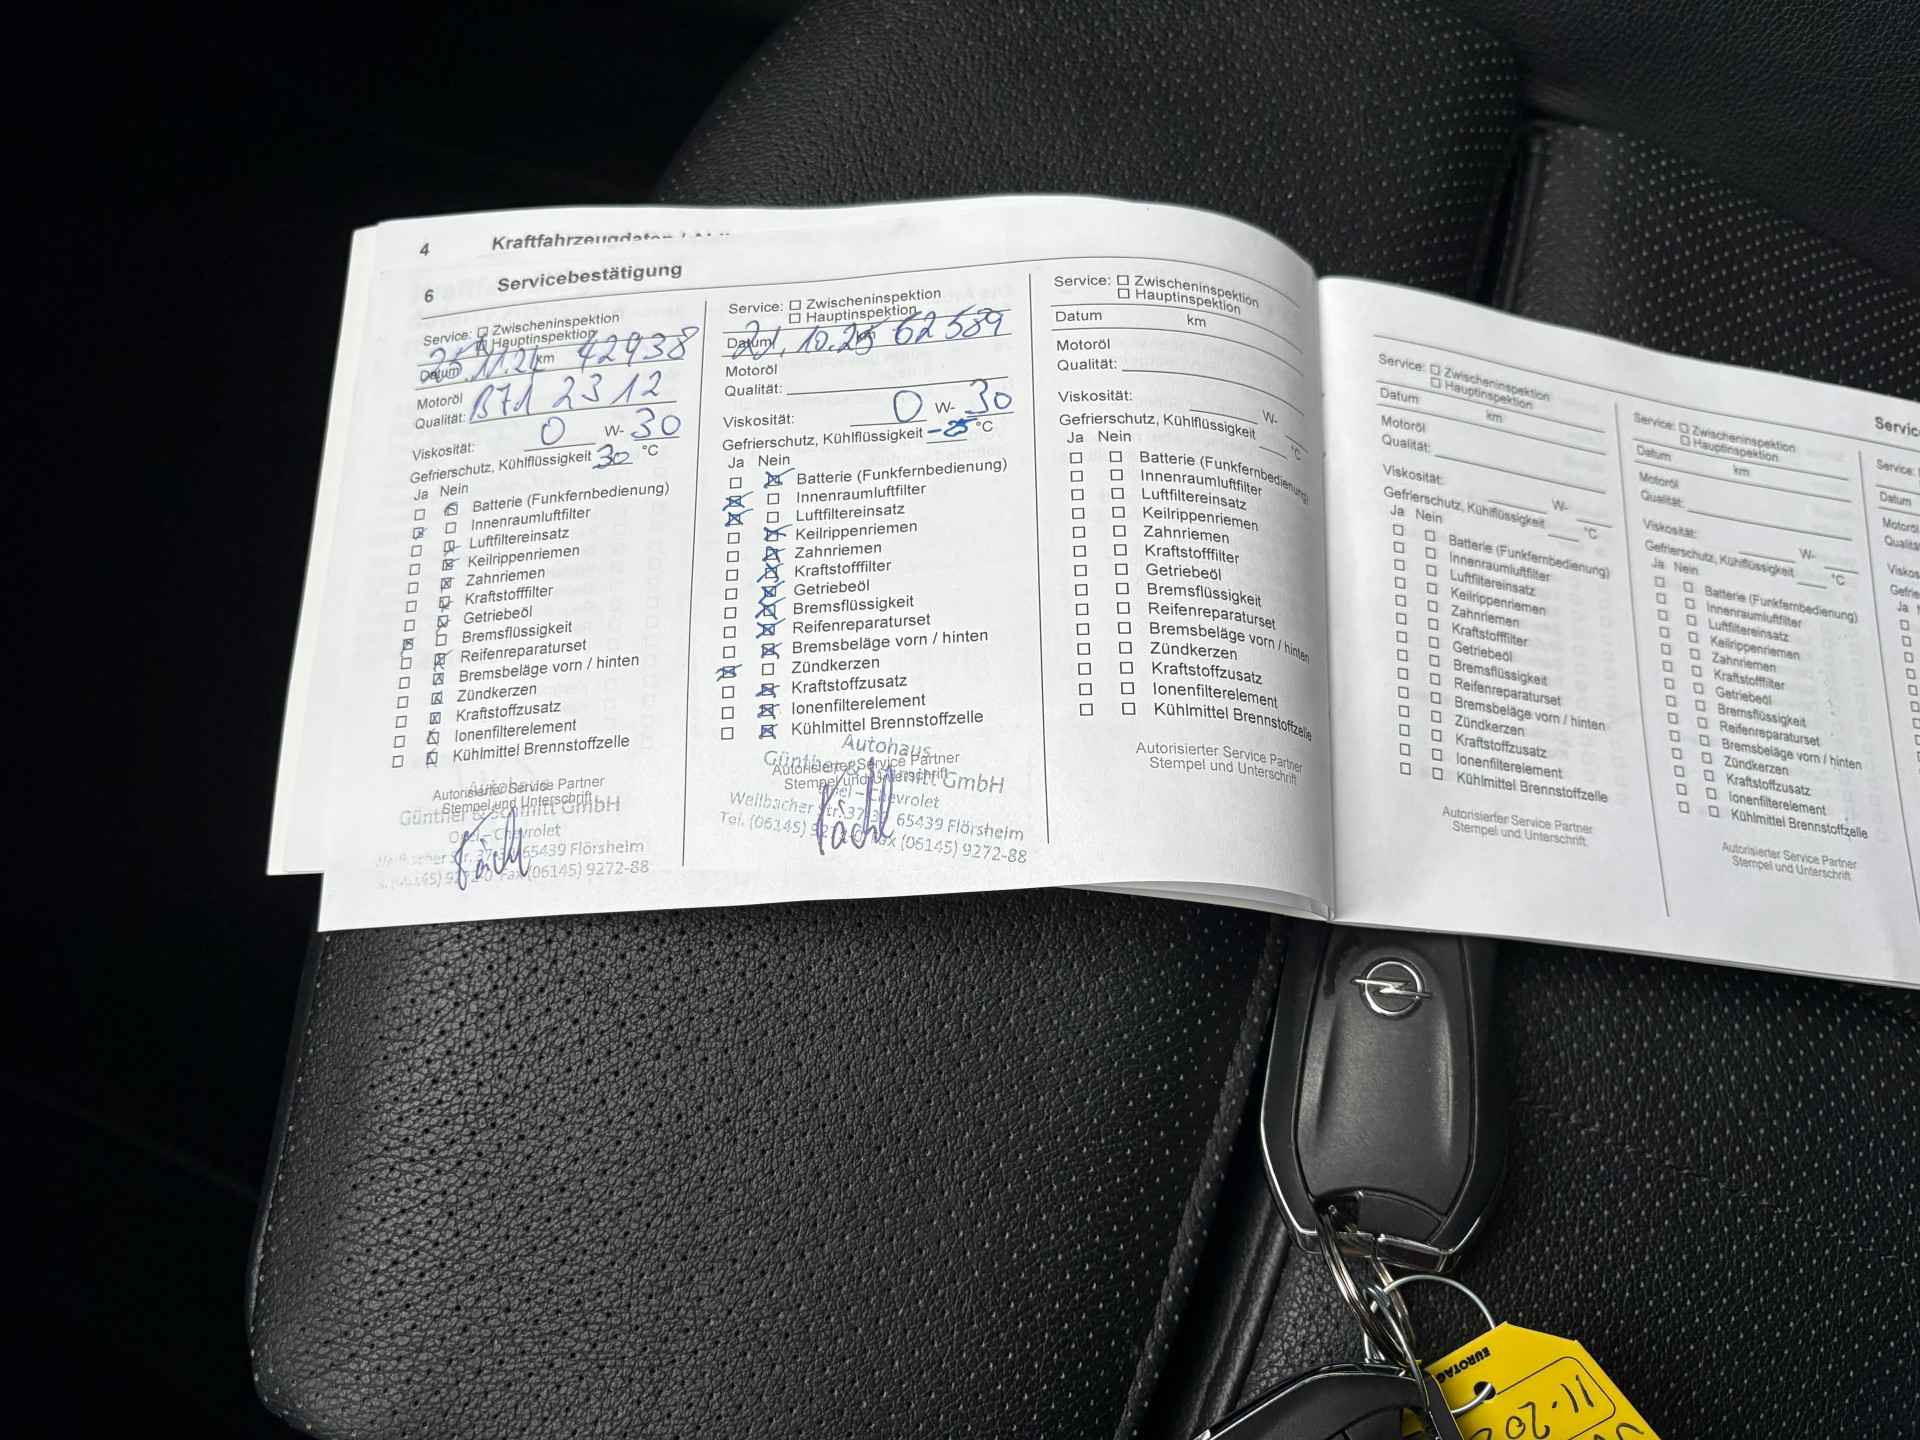 4 Kraftfahrzeugdaten /
6 Servicebestätigung
Service: Zwischeninspektion
Hauptinspektion
Datum 25.11.24 km 42938
Motoröl
Qualität: B71 2312
Viskosität: 0 W- 30
Gefrierschutz, Kühlflüssigkeit 30 °C
Ja Nein
Batterie (Funkfernbedienung)
Innenraumluftfilter
Luftfiltereinsatz
Keilrippenriemen
Zahnriemen
Kraftstofffilter
Getriebeöl
Bremsflüssigkeit
Reifenreparaturset
Bremsbeläge vorn / hinten
Zündkerzen
Kraftstoffzusatz
Ionenfilterelement
Kühlmittel Brennstoffzelle
Autohaus
Autorisierter Service Partner
Stempel und Unterschrift
Günther & Schmitt GmbH
Opel – Chevrolet
65439 Flörsheim
Fax (06145) 9272-88
Service: Zwischeninspektion
Hauptinspektion
Datum 21.10.25 km 62589
Motoröl
Qualität:
Viskosität: 0 W- 30
Gefrierschutz, Kühlflüssigkeit -25 °C
Ja Nein
Batterie (Funkfernbedienung)
Innenraumluftfilter
Luftfiltereinsatz
Keilrippenriemen
Zahnriemen
Kraftstofffilter
Getriebeöl
Bremsflüssigkeit
Reifenreparaturset
Bremsbeläge vorn / hinten
Zündkerzen
Kraftstoffzusatz
Ionenfilterelement
Kühlmittel Brennstoffzelle
Autohaus
Günther & Schmitt GmbH
Autorisierter Service Partner
Stempel und Unterschrift
Opel – Chevrolet
Weilbacher Str. 37 65439 Flörsheim
Tel. (06145) Fax (06145) 9272-88
Service: Zwischeninspektion
Hauptinspektion
Datum km
Motoröl
Qualität:
Viskosität: W-
Gefrierschutz, Kühlflüssigkeit °C
Ja Nein
Batterie (Funkfernbedienung)
Innenraumluftfilter
Luftfiltereinsatz
Keilrippenriemen
Zahnriemen
Kraftstofffilter
Getriebeöl
Bremsflüssigkeit
Reifenreparaturset
Bremsbeläge vorn / hinten
Zündkerzen
Kraftstoffzusatz
Ionenfilterelement
Kühlmittel Brennstoffzelle
Autorisierter Service Partner
Stempel und Unterschrift
Service: Zwischeninspektion
Hauptinspektion
Datum km
Motoröl
Qualität:
Viskosität: W-
Gefrierschutz, Kühlflüssigkeit °C
Ja Nein
Batterie (Funkfernbedienung)
Innenraumluftfilter
Luftfiltereinsatz
Keilrippenriemen
Zahnriemen
Kraftstofffilter
Getriebeöl
Bremsflüssigkeit
Reifenreparaturset
Bremsbeläge vorn / hinten
Zündkerzen
Kraftstoffzusatz
Ionenfilterelement
Kühlmittel Brennstoffzelle
Autorisierter Service Partner
Stempel und Unterschrift
Service: Zwischeninspektion
Hauptinspektion
Datum km
Motoröl
Qualität:
Viskosität: W-
Gefrierschutz, Kühlflüssigkeit °C
Ja Nein
Batterie (Funkfernbedienung)
Innenraumluftfilter
Luftfiltereinsatz
Keilrippenriemen
Zahnriemen
Kraftstofffilter
Getriebeöl
Bremsflüssigkeit
Reifenreparaturset
Bremsbeläge vorn / hinten
Zündkerzen
Kraftstoffzusatz
Ionenfilterelement
Kühlmittel Brennstoffzelle
Autorisierter Service Partner
Stempel und Unterschrift
Servic
Service:
Datum
Motoröl
Ja
EUROTAG